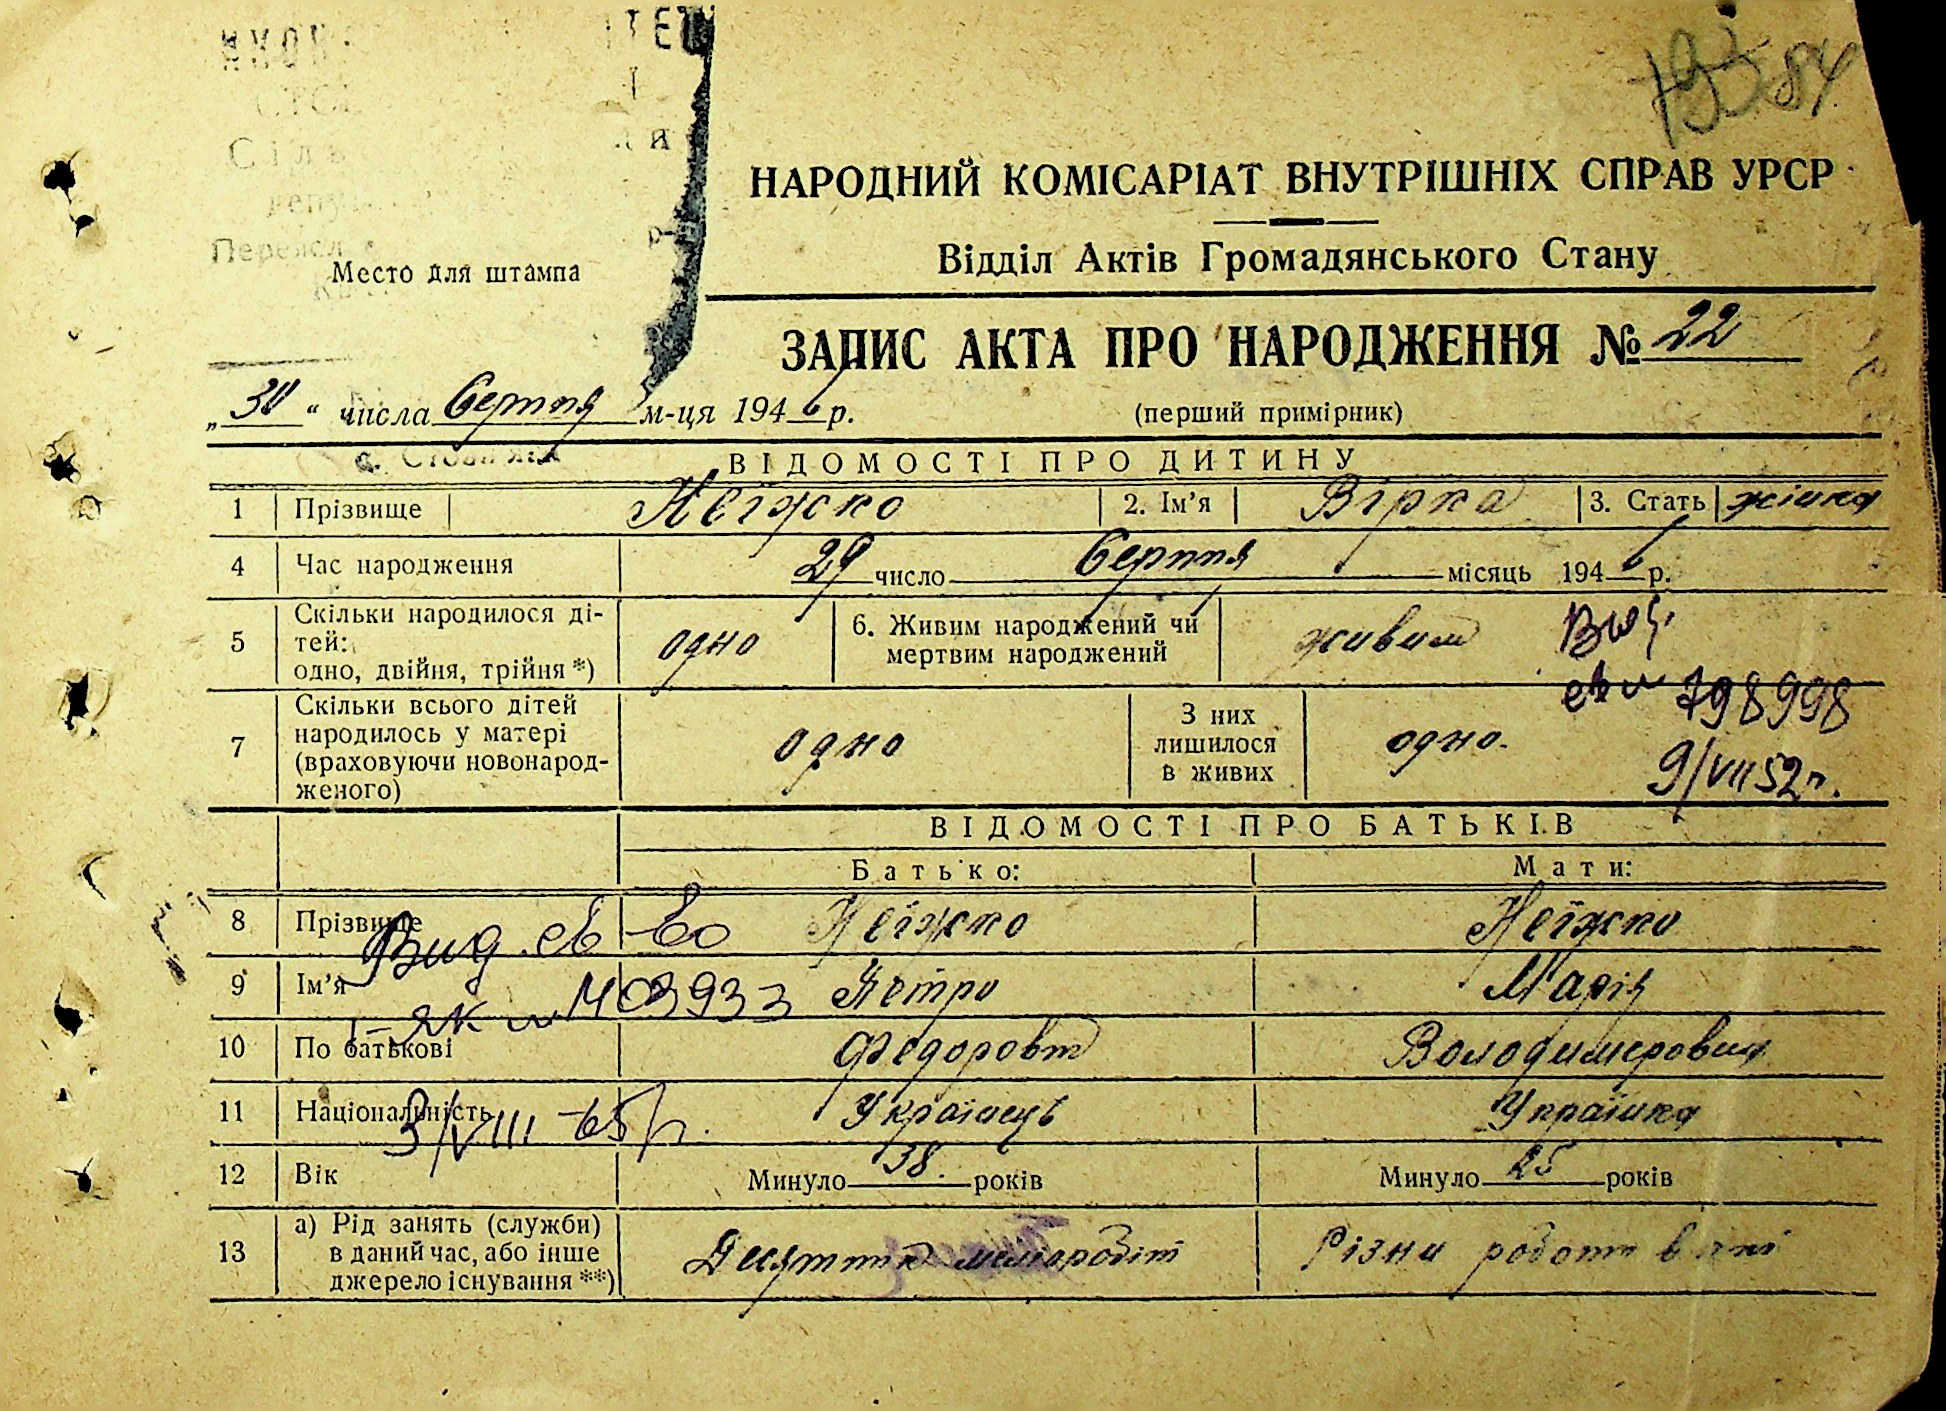 193 84
НАРОДНИЙ КОМІСАРІАТ ВНУТРІШНІХ СПРАВ УРСР
Відділ Актів Громадянського Стану
Место для штампа
ЗАПИС АКТА ПРО НАРОДЖЕННЯ № 22
„30“ числа Серпня м-ця 1946 р.
(перший примірник)
ВІДОМОСТІ ПРО ДИТИНУ
1 Прізвище Неїжко 2. Ім’я Вірка 3. Стать жінка
4 Час народження 29 число Серпня місяць 1946 р.
5 Скільки народилося ді-
тей:
одно, двійня, трійня *) одно 6. Живим народжений чи
мертвим народжений живим
7 Скільки всього дітей
народилось у матері
(враховуючи новонарод-
женого) одно З них
лишилося
в живих одно.
798998
9/VII 52 г.
ВІДОМОСТІ ПРО БАТЬКІВ
Батько: Мати:
8 Прізвище Неїжко Неїжко
9 Ім’я Петро Марія
10 По батькові Федорович Володимировна
11 Національність Українець Українка
12 Вік Минуло 38 років Минуло 25 років
13 а) Рід занять (служби)
в даний час, або інше
джерело існування **) Різни роботи
Выд. св-во
403933
3/VIII-65 г.